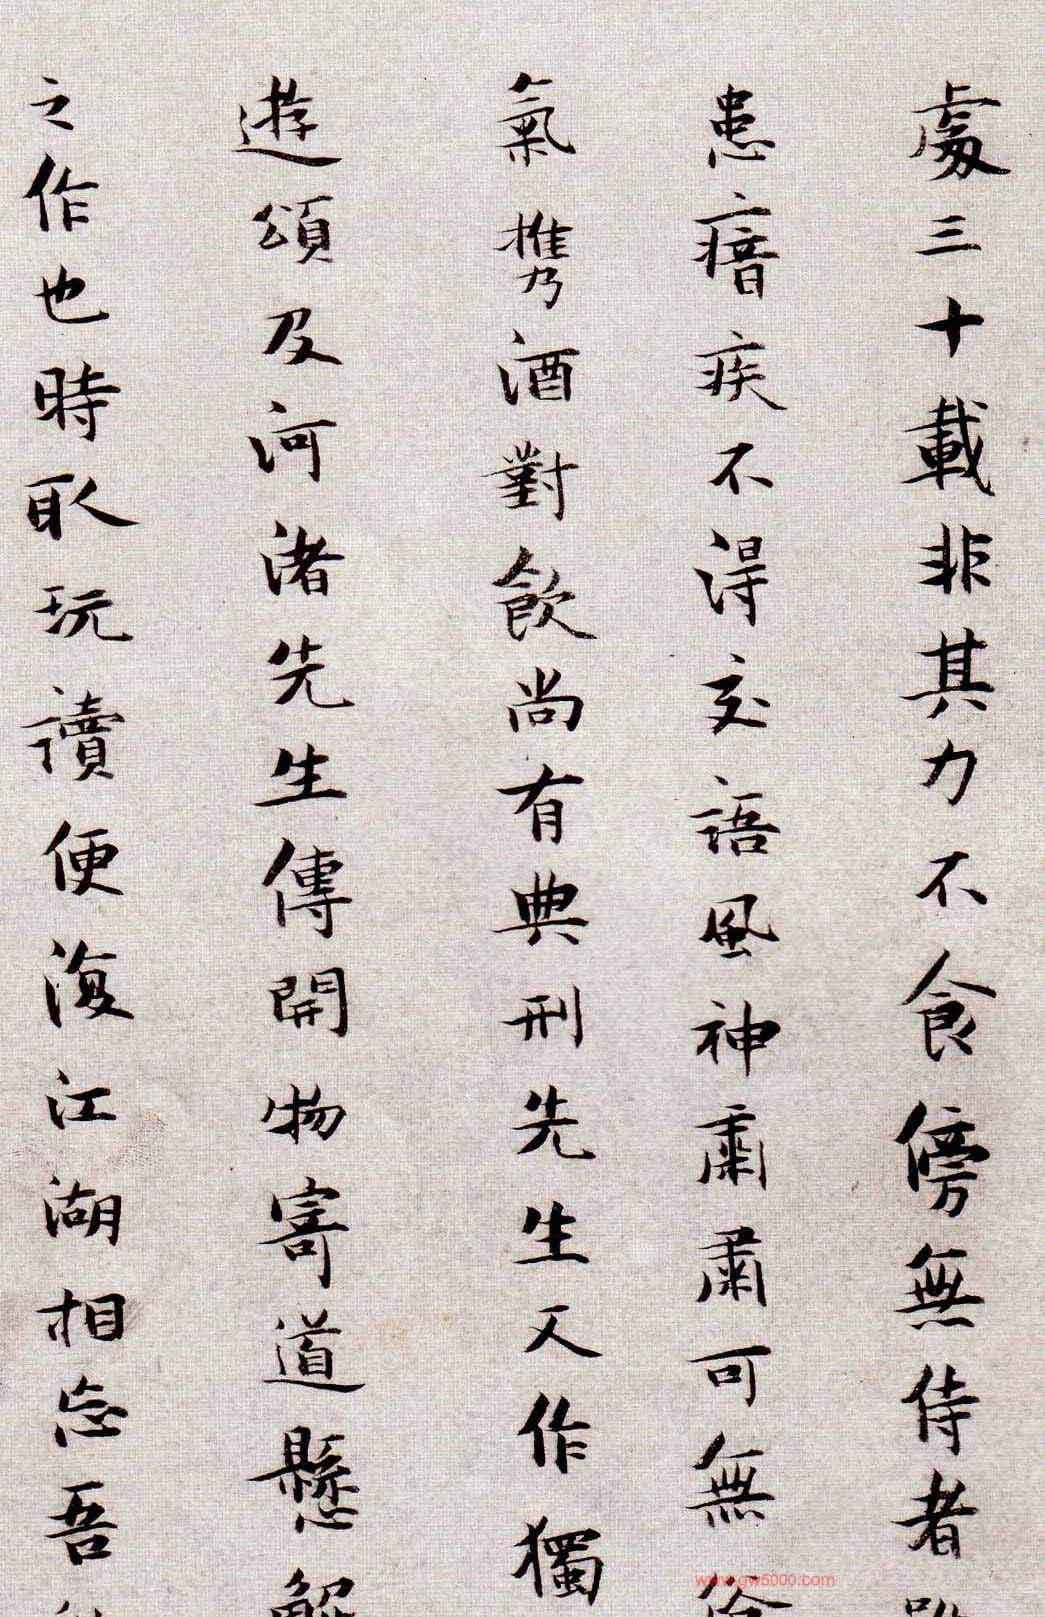 處三十載非其力不食傍無侍者
患瘖疾不得交語風神肅肅可無
氣攜酒對飲尚有典刑先生又作獨
遊頌及河渚先生傳開物寄道懸解
之作也時取玩讀便復江湖相忘吾
www.gw5000.com